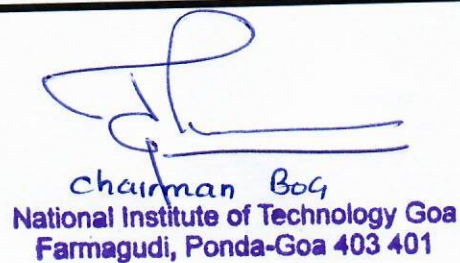 Chairman BOG
National Institute of Technology Goa
Farmagudi, Ponda-Goa 403 401